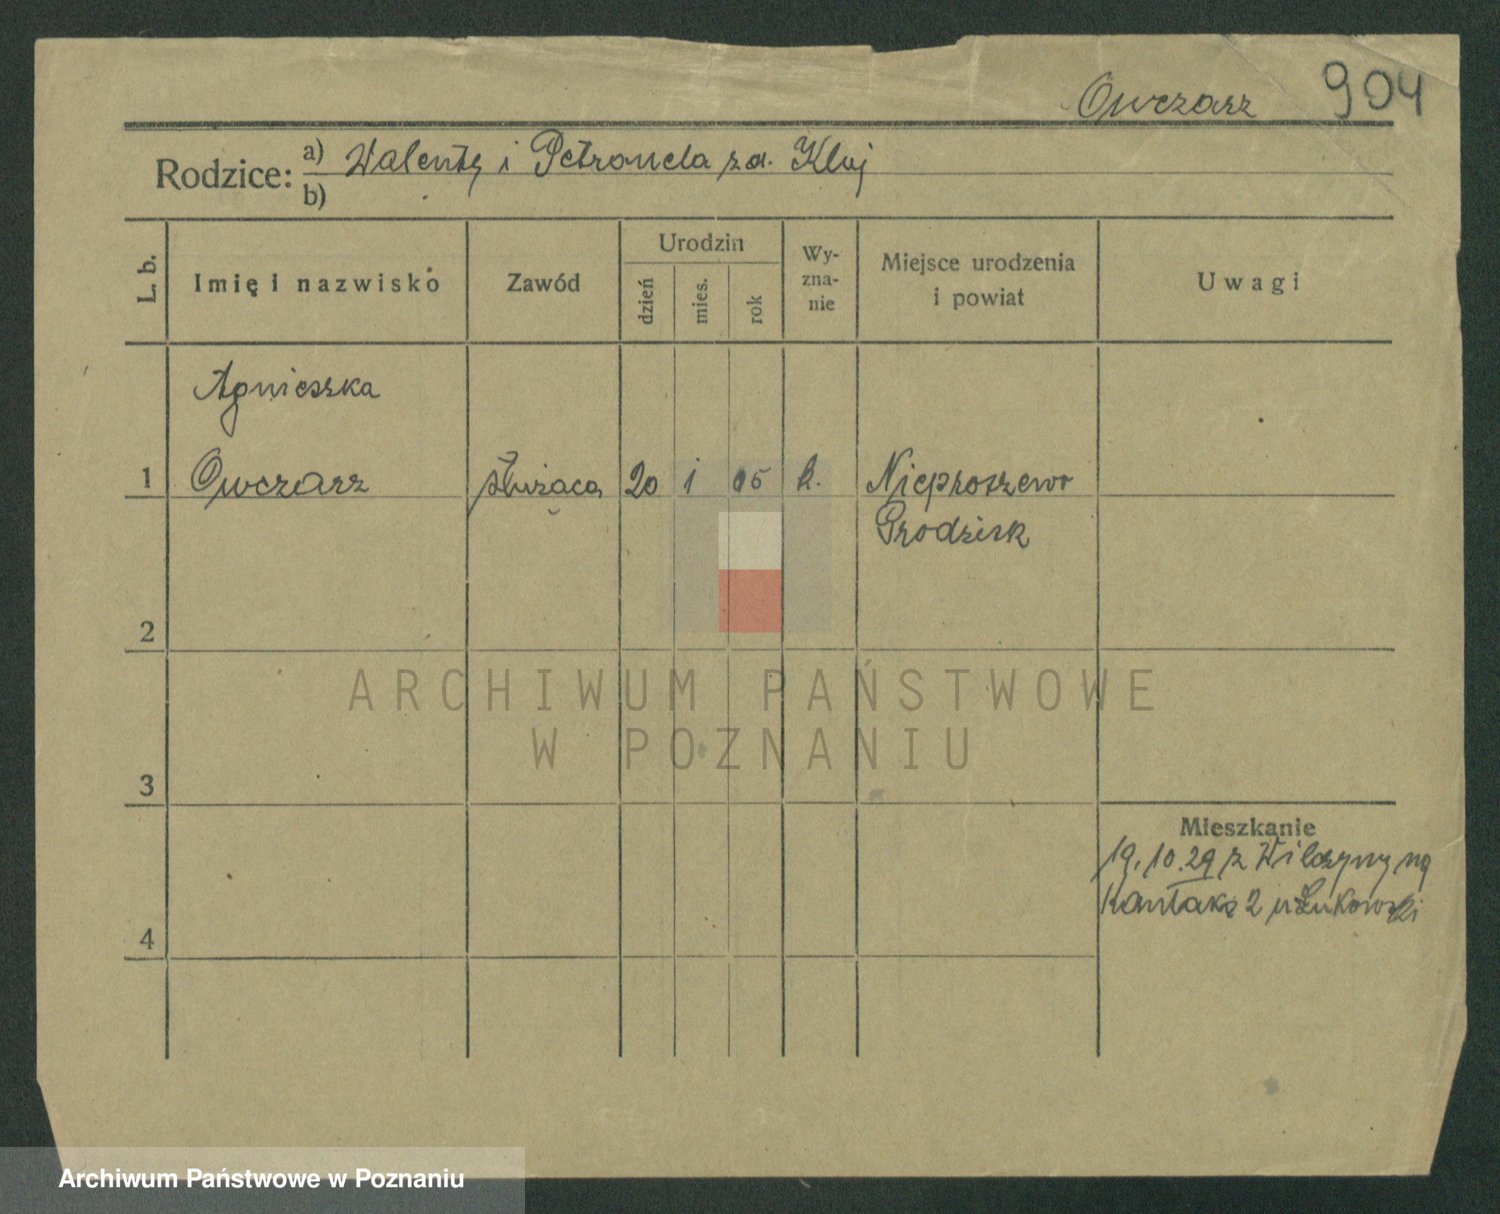 Owczarz 904
Rodzice: a) Walenty i Petronela zd. Kluj
b)
L. b. Imię i nazwisko Zawód Urodzin dzień mies. rok Wy-zna-nie Miejsce urodzenia i powiat Uwagi
Agnieszka
1 Owczarz służąca 20 1 05 k. Nieproszewo
Grodzisk
2
ARCHIWUM PAŃSTWOWE
W POZNANIU
3
Mieszkanie
19.10.29 z Wilczyny na
Kantaka 2 u Łukowski
4
Archiwum Państwowe w Poznaniu